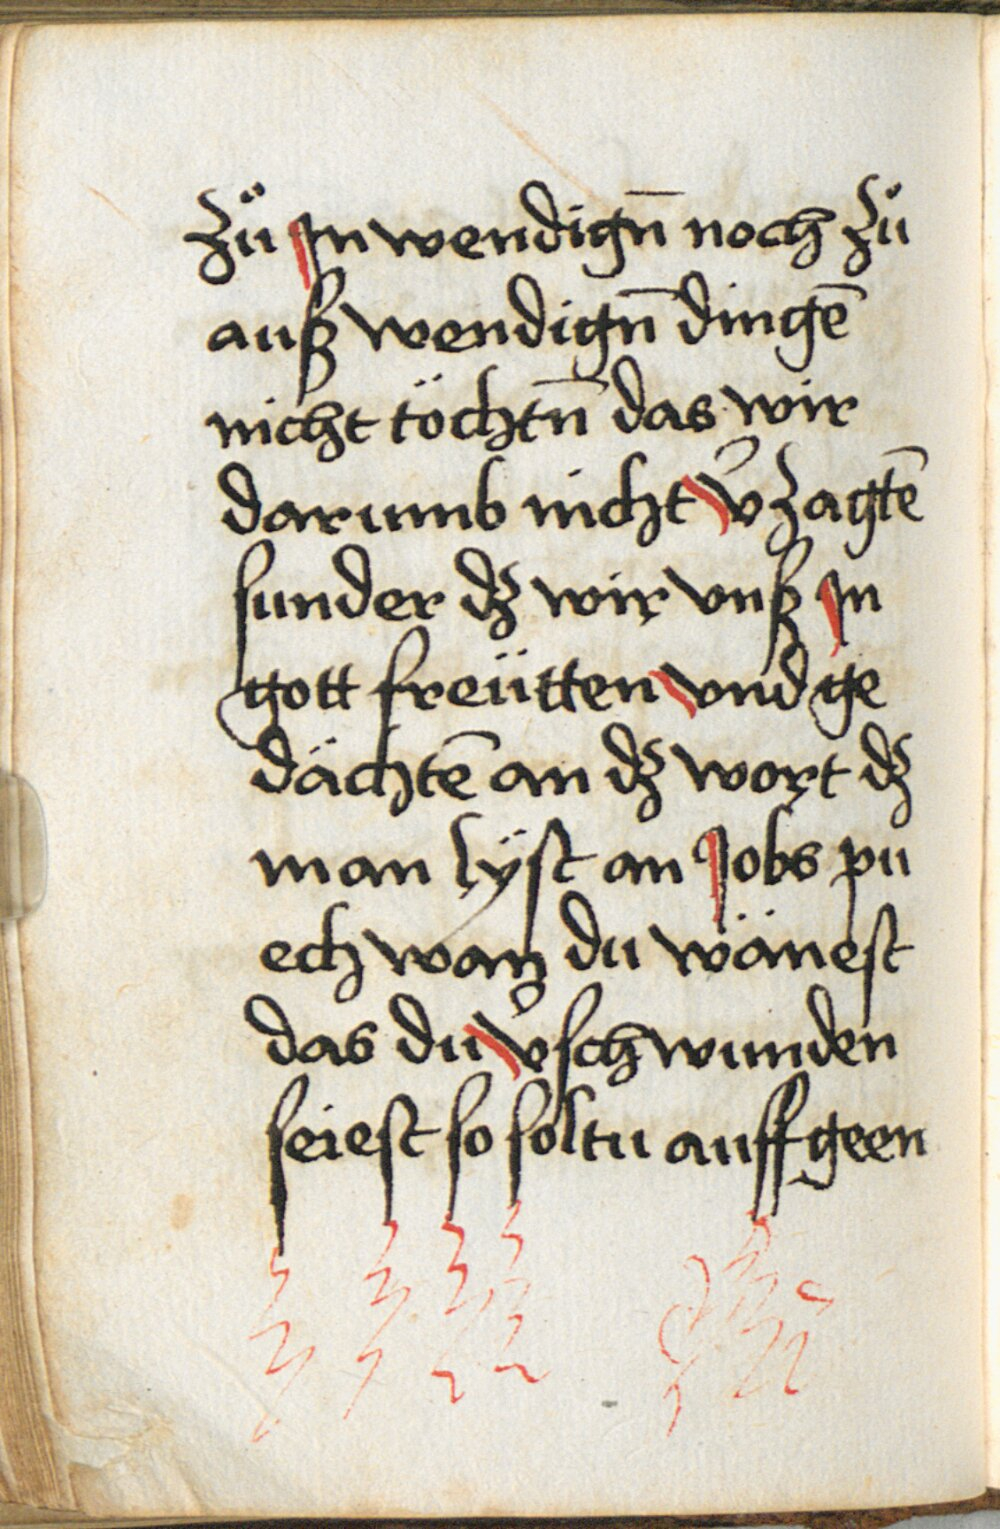 zü Jn wendign̄ noch zů
auß wendign̄ dingē
nicht töchtn̄ das wir
darumb nicht v̉zagtē
sunder dʒ wir vnß Jn
gott freütten vnd ge
dächtē an dʒ wort dʒ
man lÿst an Jobs pu
ech wan du wänest
das du v̉schwunden
seiest so soltu auff geen